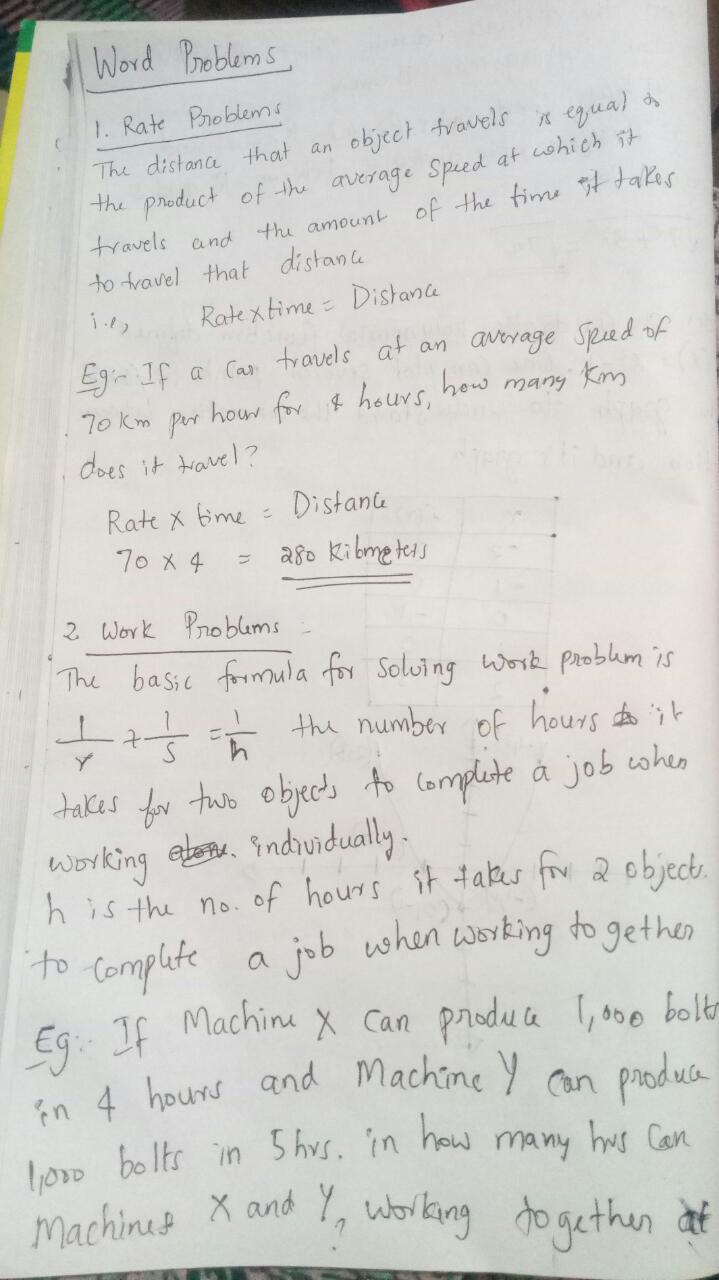 Word Problems
1. Rate Problems
The distance that an object travels is equal to
the product of the average speed at which it
travels and the amount of the time it takes
to travel that distance
i.e, Rate x time = Distance
Eg:- If a Car travels at an average speed of
70 km per hour for 4 hours, how many km
does it travel?
Rate x time = Distance
70 x 4 = 280 Kilometers
2 Work Problems -
The basic formula for Solving work problem is
1/r + 1/s = 1/h the number of hours it
takes for two objects to complete a job when
working individually.
h is the no. of hours it takes for 2 object.
to complete a job when working together
Eg:- If Machine X can produce 1,000 bolts
in 4 hours and Machine Y can produce
1,000 bolts in 5 hrs. in how many hrs Can
Machines X and Y, working together at